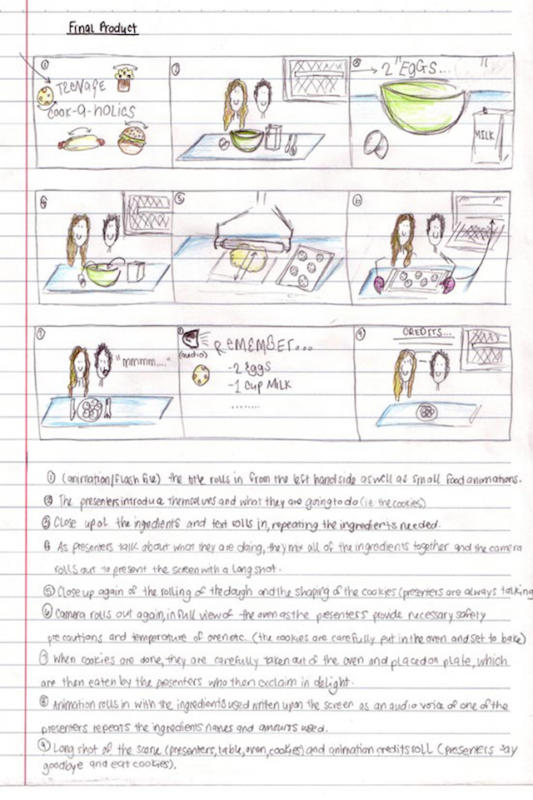 Final Product
① TEENAGE
COOK-A-HOLICS
②
③ → 2 "EGGS...
MILK
④
⑤
⑥
⑦ "mmmm...."
⑧ (audio) REMEMBER...
-2 EGGS
-1 CUP MILK
........
⑨ CREDITS...
① (animation/flash file) the title rolls in from the left hand side as well as small food animations.
② The presenters introduce themselves and what they are going to do (i.e. the cookies)
③ Close up of the ingredients and text rolls in, repeating the ingredients needed.
④ As presenters talk about what they are doing, they mix all of the ingredients together and the camera
rolls out to present the screen with a long shot.
⑤ Close up again of the rolling of the dough and the shaping of the cookies (presenters are always talking
⑥ Camera rolls out again, in full view of the oven as the presenters provide necessary safety
precautions and temperature of oven etc. (the cookies are carefully put in the oven and set to bake)
⑦ When cookies are done, they are carefully taken out of the oven and placed on plate, which
are then eaten by the presenters who then exclaim in delight.
⑧ Animation rolls in with the ingredients used written upon the screen as an audio voice of one of the
presenters repeats the ingredients names and amounts used.
⑨ Long shot of the scene (presenters, table, oven, cookies) and animation credits roll (presenters say
goodbye and eat cookies).